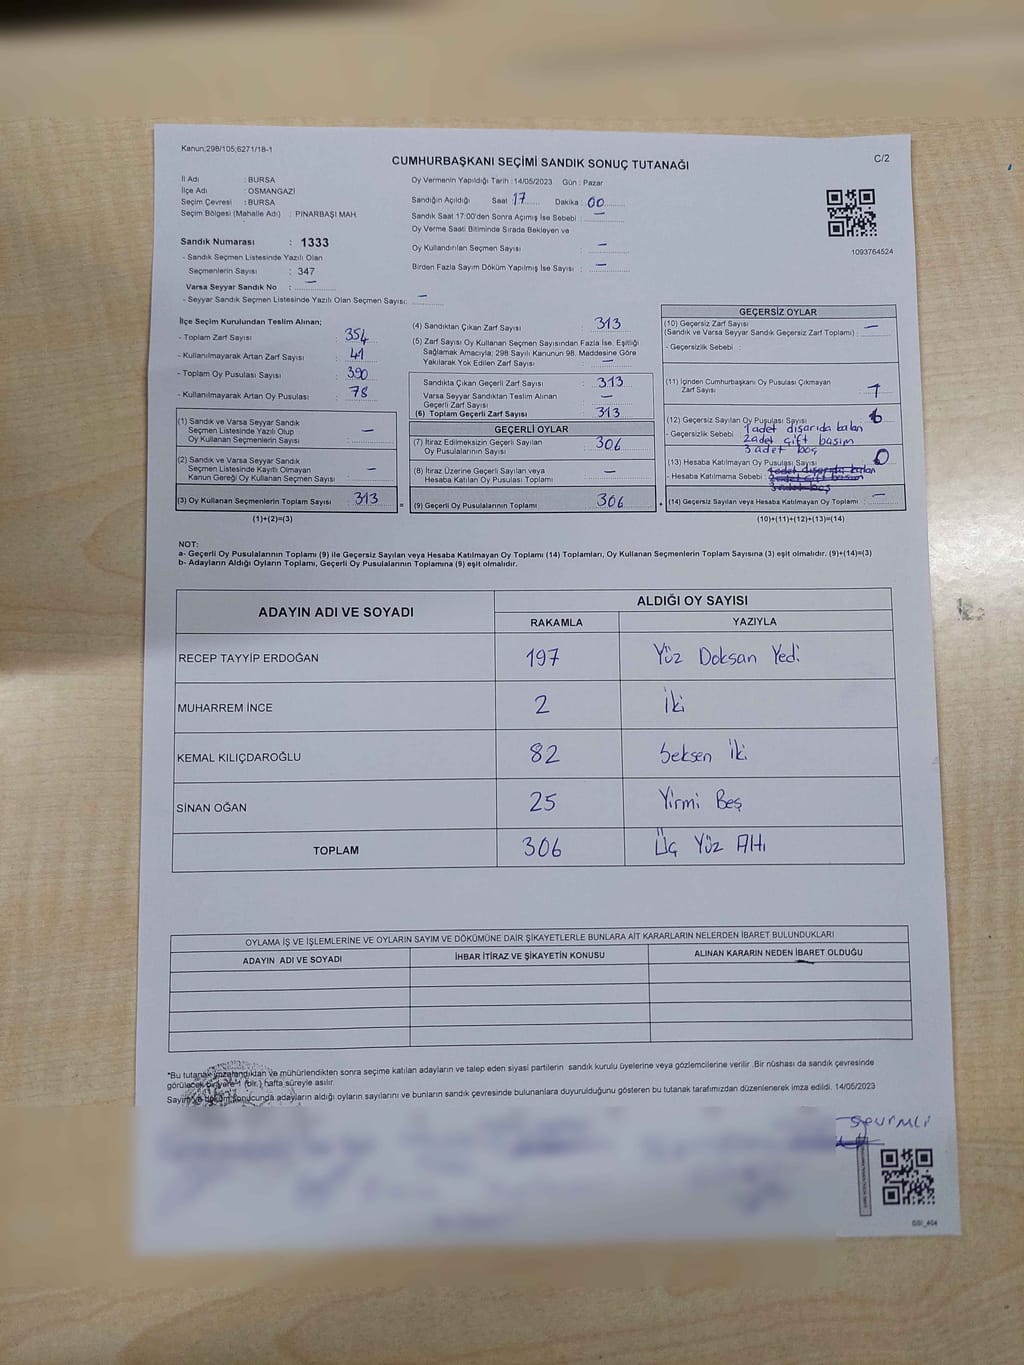 Kanun;298/105;6271/18-1
CUMHURBAŞKANI SEÇİMİ SANDIK SONUÇ TUTANAĞI
C/2
İl Adı : BURSA
İlçe Adı : OSMANGAZİ
Seçim Çevresi : BURSA
Seçim Bölgesi (Mahalle Adı) : PINARBAŞI MAH.
Sandık Numarası : 1333
- Sandık Seçmen Listesinde Yazılı Olan
Seçmenlerin Sayısı : 347
Varsa Seyyar Sandık No : —
- Seyyar Sandık Seçmen Listesinde Yazılı Olan Seçmen Sayısı: —
Oy Vermenin Yapıldığı Tarih : 14/05/2023 Gün : Pazar
Sandığın Açıldığı Saat 17 Dakika : 00
Sandık Saat 17:00'den Sonra Açımış İse Sebebi : —
Oy Verme Saati Bitiminde Sırada Bekleyen ve
Oy Kullandırılan Seçmen Sayısı : —
Birden Fazla Sayım Döküm Yapılmış İse Sayısı : —
1093764524
İlçe Seçim Kurulundan Teslim Alınan;
- Toplam Zarf Sayısı : 354
- Kullanılmayarak Artan Zarf Sayısı : 41
- Toplam Oy Pusulası Sayısı : 390
- Kullanılmayarak Artan Oy Pusulası : 78
(1) Sandık ve Varsa Seyyar Sandık
Seçmen Listesinde Yazılı Olup
Oy Kullanan Seçmenlerin Sayısı : —
(2) Sandık ve Varsa Seyyar Sandık
Seçmen Listesinde Kayıtlı Olmayan
Kanun Gereği Oy Kullanan Seçmen Sayısı : —
(3) Oy Kullanan Seçmenlerin Toplam Sayısı : 313
(1)+(2)=(3)
(4) Sandıktan Çıkan Zarf Sayısı : 313
(5) Zarf Sayısı Oy Kullanan Seçmen Sayısından Fazla İse, Eşitliği
Sağlamak Amacıyla; 298 Sayılı Kanunun 98. Maddesine Göre
Yakılarak Yok Edilen Zarf Sayısı : —
Sandıkta Çıkan Geçerli Zarf Sayısı : 313
Varsa Seyyar Sandıktan Teslim Alınan
Geçerli Zarf Sayısı : —
(6) Toplam Geçerli Zarf Sayısı : 313
GEÇERLİ OYLAR
(7) İtiraz Edilmeksizin Geçerli Sayılan
Oy Pusulalarının Sayısı : 306
(8) İtiraz Üzerine Geçerli Sayılan veya
Hesaba Katılan Oy Pusulası Toplamı : —
= (9) Geçerli Oy Pusulalarının Toplamı : 306
GEÇERSİZ OYLAR
(10) Geçersiz Zarf Sayısı
(Sandık ve Varsa Seyyar Sandık Geçersiz Zarf Toplamı) : —
- Geçersizlik Sebebi :
(11) İçinden Cumhurbaşkanı Oy Pusulası Çıkmayan
Zarf Sayısı : 1
(12) Geçersiz Sayılan Oy Pusulası Sayısı : 6
- Geçersizlik Sebebi : 1 adet dışarıda kalan
2 adet çift basım
3 adet boş
(13) Hesaba Katılmayan Oy Pusulası Sayısı : 0
- Hesaba Katılmama Sebebi : 1 adet dışarıda kalan
2 adet çift basım
3 adet boş
+ (14) Geçersiz Sayılan veya Hesaba Katılmayan Oy Toplamı : —
(10)+(11)+(12)+(13)=(14)
NOT:
a- Geçerli Oy Pusulalarının Toplamı (9) ile Geçersiz Sayılan veya Hesaba Katılmayan Oy Toplamı (14) Toplamları, Oy Kullanan Seçmenlerin Toplam Sayısına (3) eşit olmalıdır. (9)+(14)=(3)
b- Adayların Aldığı Oyların Toplamı, Geçerli Oy Pusulalarının Toplamına (9) eşit olmalıdır.
ADAYIN ADI VE SOYADI ALDIĞI OY SAYISI
RAKAMLA YAZIYLA
RECEP TAYYİP ERDOĞAN 197 Yüz Doksan Yedi
MUHARREM İNCE 2 İki
KEMAL KILIÇDAROĞLU 82 Seksen İki
SİNAN OĞAN 25 Yirmi Beş
TOPLAM 306 Üç Yüz Altı
OYLAMA İŞ VE İŞLEMLERİNE VE OYLARIN SAYIM VE DÖKÜMÜNE DAİR ŞİKAYETLERLE BUNLARA AİT KARARLARIN NELERDEN İBARET BULUNDUKLARI
ADAYIN ADI VE SOYADI İHBAR İTİRAZ VE ŞİKAYETİN KONUSU ALINAN KARARIN NEDEN İBARET OLDUĞU
*Bu tutanak imzalandıktan ve mühürlendikten sonra seçime katılan adayların ve talep eden siyasi partilerin sandık kurulu üyelerine veya gözlemcilerine verilir .Bir nüshası da sandık çevresinde
görülecek bir yere 1 (bir ) hafta süreyle asılır.
Sayım ve döküm sonucunda adayların aldığı oyların sayılarını ve bunların sandık çevresinde bulunanlara duyurulduğunu gösteren bu tutanak tarafımızdan düzenlenerek imza edildi. 14/05/2023